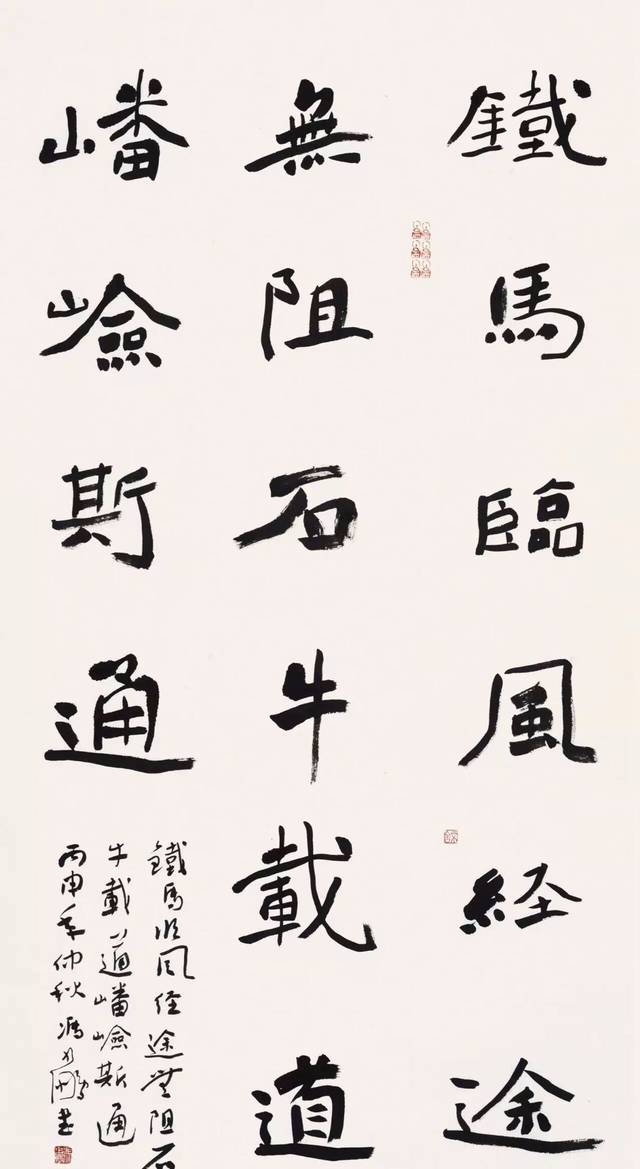 鐵馬臨風経途
無阻石牛載道
嶓嶮斯通
鐵馬临风経途無阻石
牛載道嶓嶮斯通
丙申年仲秋馮